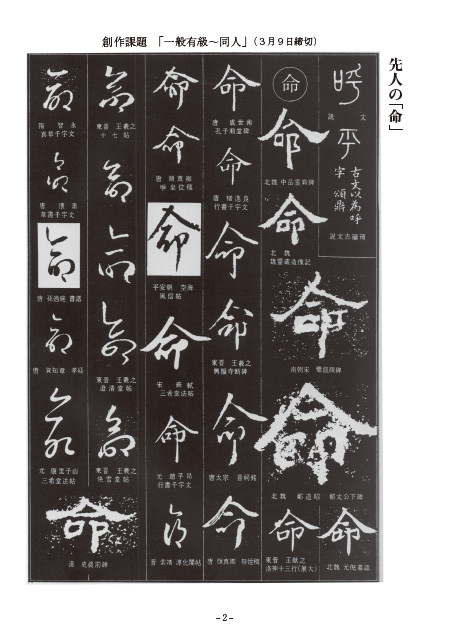 創作課題　「一般有級～同人」（３月９日締切）
先人の「命」
命
説　文
古文以為呼
字　頌鼎
説文古籀補
命
北魏 中岳霊廟碑
命
北　魏
魏霊蔵造像記
命
南朝宋　爨龍顔碑
命
北魏　鄭道昭　鄭文公下碑
命
東晋　王献之
洛神十三行
命
北魏 元倪墓誌
命
唐　虞世南
孔子廟堂碑
命
唐　褚遂良
行書千字文
命
東晋　王羲之
興福寺断碑
命
唐太宗　晋祠銘
命
唐 顔真卿 祭姪稿
命
命
唐　顔真卿
争坐位稿
命
平安朝　空海
風信帖
命
宋　蘇軾
三希堂法帖
命
元　趙子昂
行書千字文
命
晋 索靖 淳化閣帖
命
東晋　王羲之
十七帖
命
命
命
東晋　王羲之
澄清堂帖
命
東晋　王羲之
快雪堂帖
命
隋　智永
真草千字文
命
唐　懐素
草書千字文
命
唐 孫過庭 書譜
命
唐　賀知章　孝経
命
元　康里子山
三希堂法帖
命
－２－